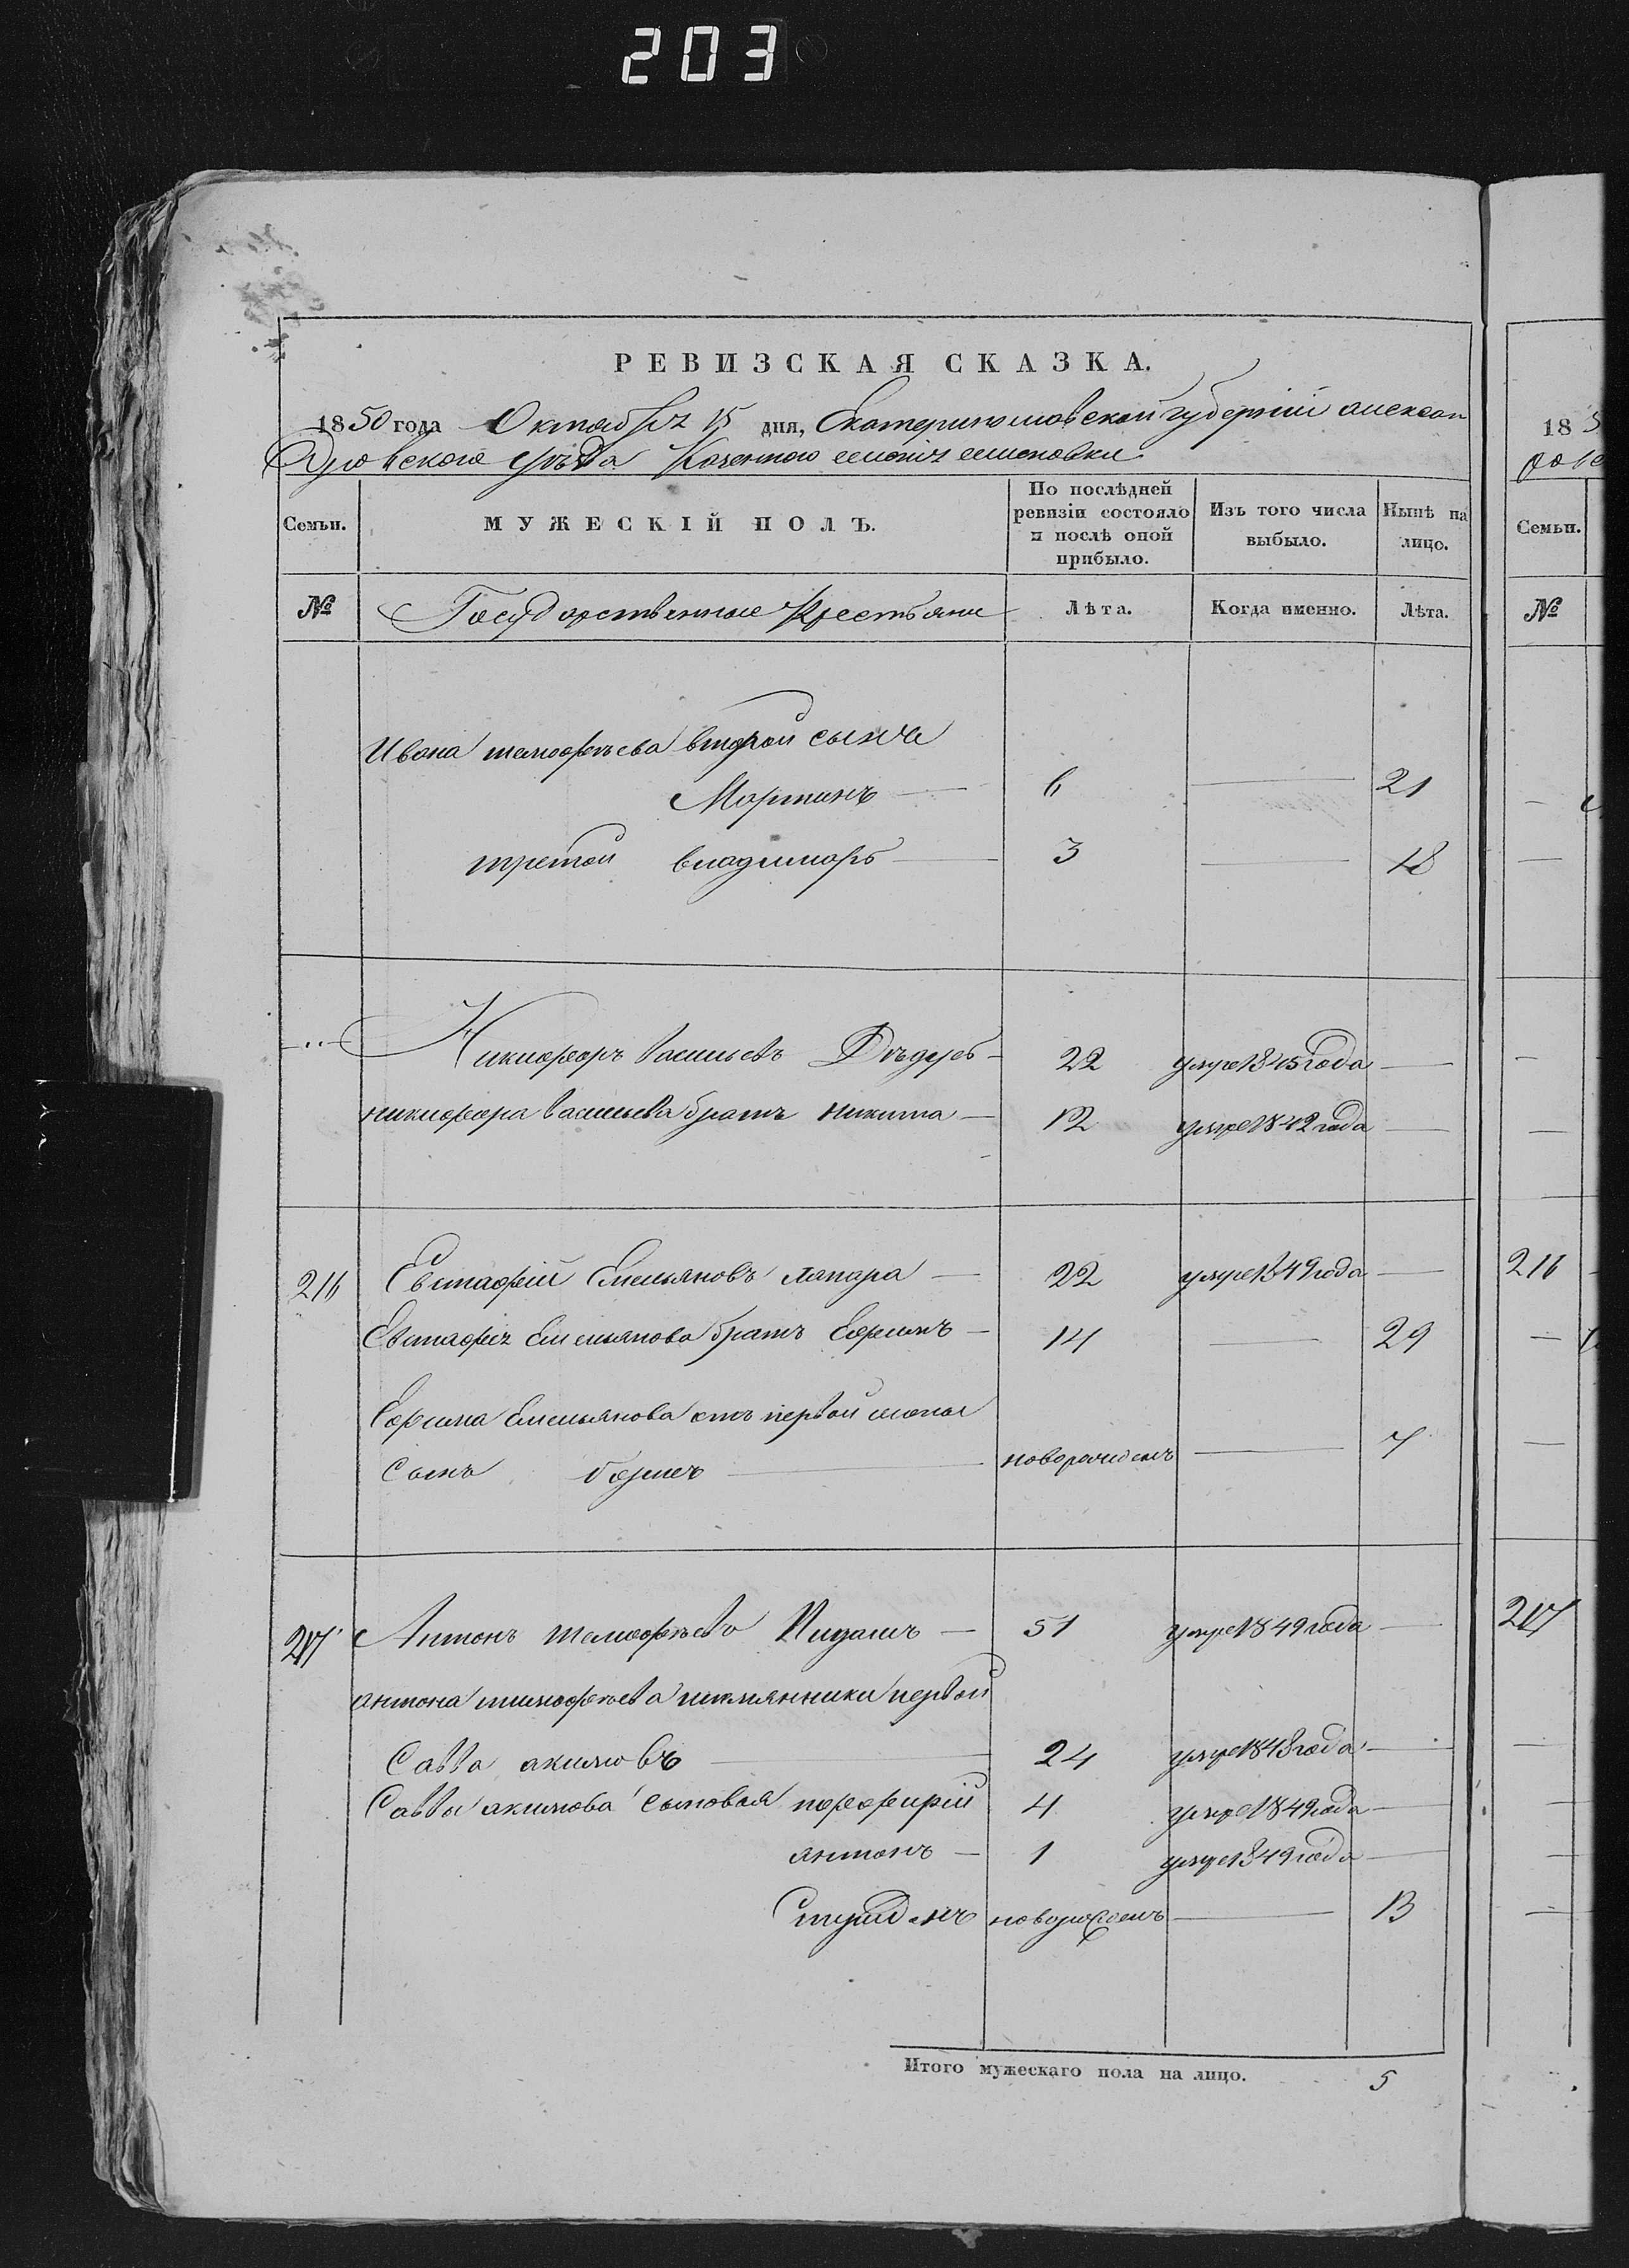 203
РЕВИЗСКАЯ СКАЗКА.
1850 года Октября 15 дня, Екатеринославской губернии Александ
ровского уѣзда казенного
Семьи. МУЖЕСКІЙ ПОЛЪ. По послѣдней ревизіи состояло и послѣ оной прибыло. Изъ того числа выбыло. Нынѣ на лицо.
№ Государственные Крестьяне Лѣта. Когда именно. Лѣта.
Ивана тимофѣева второй сынъ
Мартинъ — 6 — 21
третой владимиръ — 3 — 18
Никифоръ васильевъ 22 умре 1845 года —
никифора васильева братъ никита — 12 умре 1842 года —
216 Евстафій Емельяновъ лапара — 22 умре 1849 года —
Евстафія Емельянова братъ Ефимъ — 14 — 29
Ефима Емельянова отъ первой жены
Сынъ — новорожденъ — 7
217 Антонъ тимофѣевъ — 51 умре 1849 года —
антона тимофѣева племянники первой
Савва акимовъ — 24 умре 1848 года —
Саввы акимова сыновья порфирій 4 умре 1849 года —
антонъ — 1 умре 1849 года —
новорожденъ — 13
Итого мужескаго пола на лицо. 5
18 5
Семьи.
№
216
217